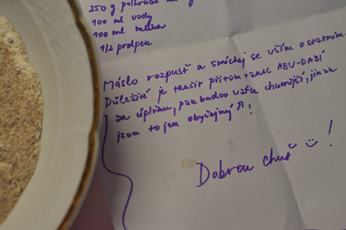 250 g polohrubé
100 ml vody
100 ml mléka
1/2 prdpeč
Máslo rozpusť a smíchej se vším ostatním.
Důležité je tančit přitom tanec ABU-DABÍ
za úplňku, pak budou vafle chutnější, jinak
jsou to jen obyčejný
Dobrou chuť !